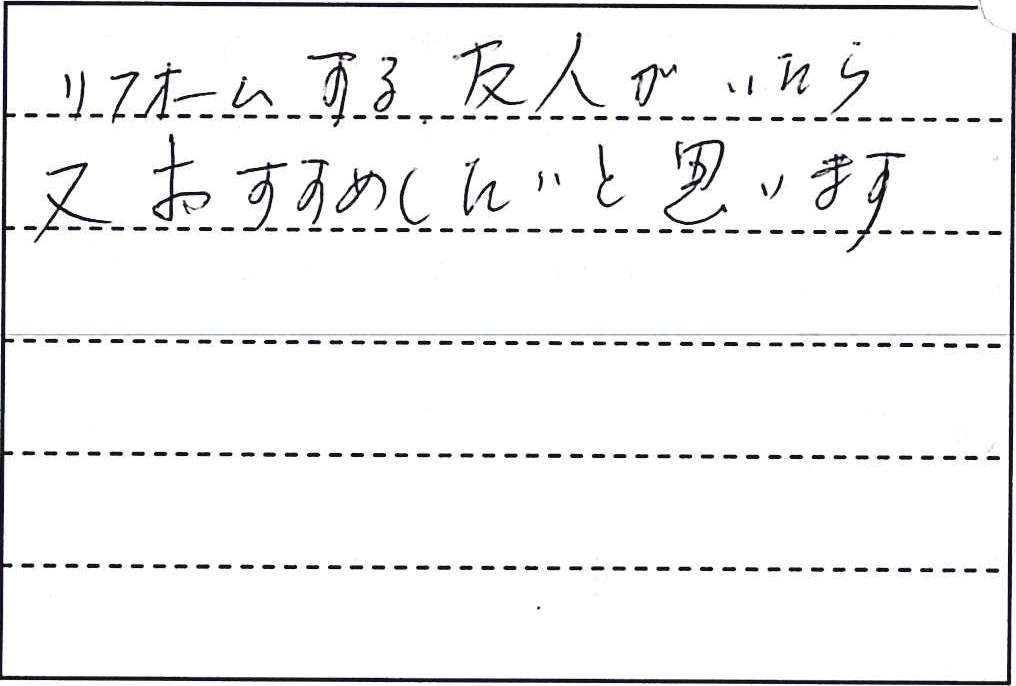 リフォームする友人がいたら
又おすすめしたいと思います